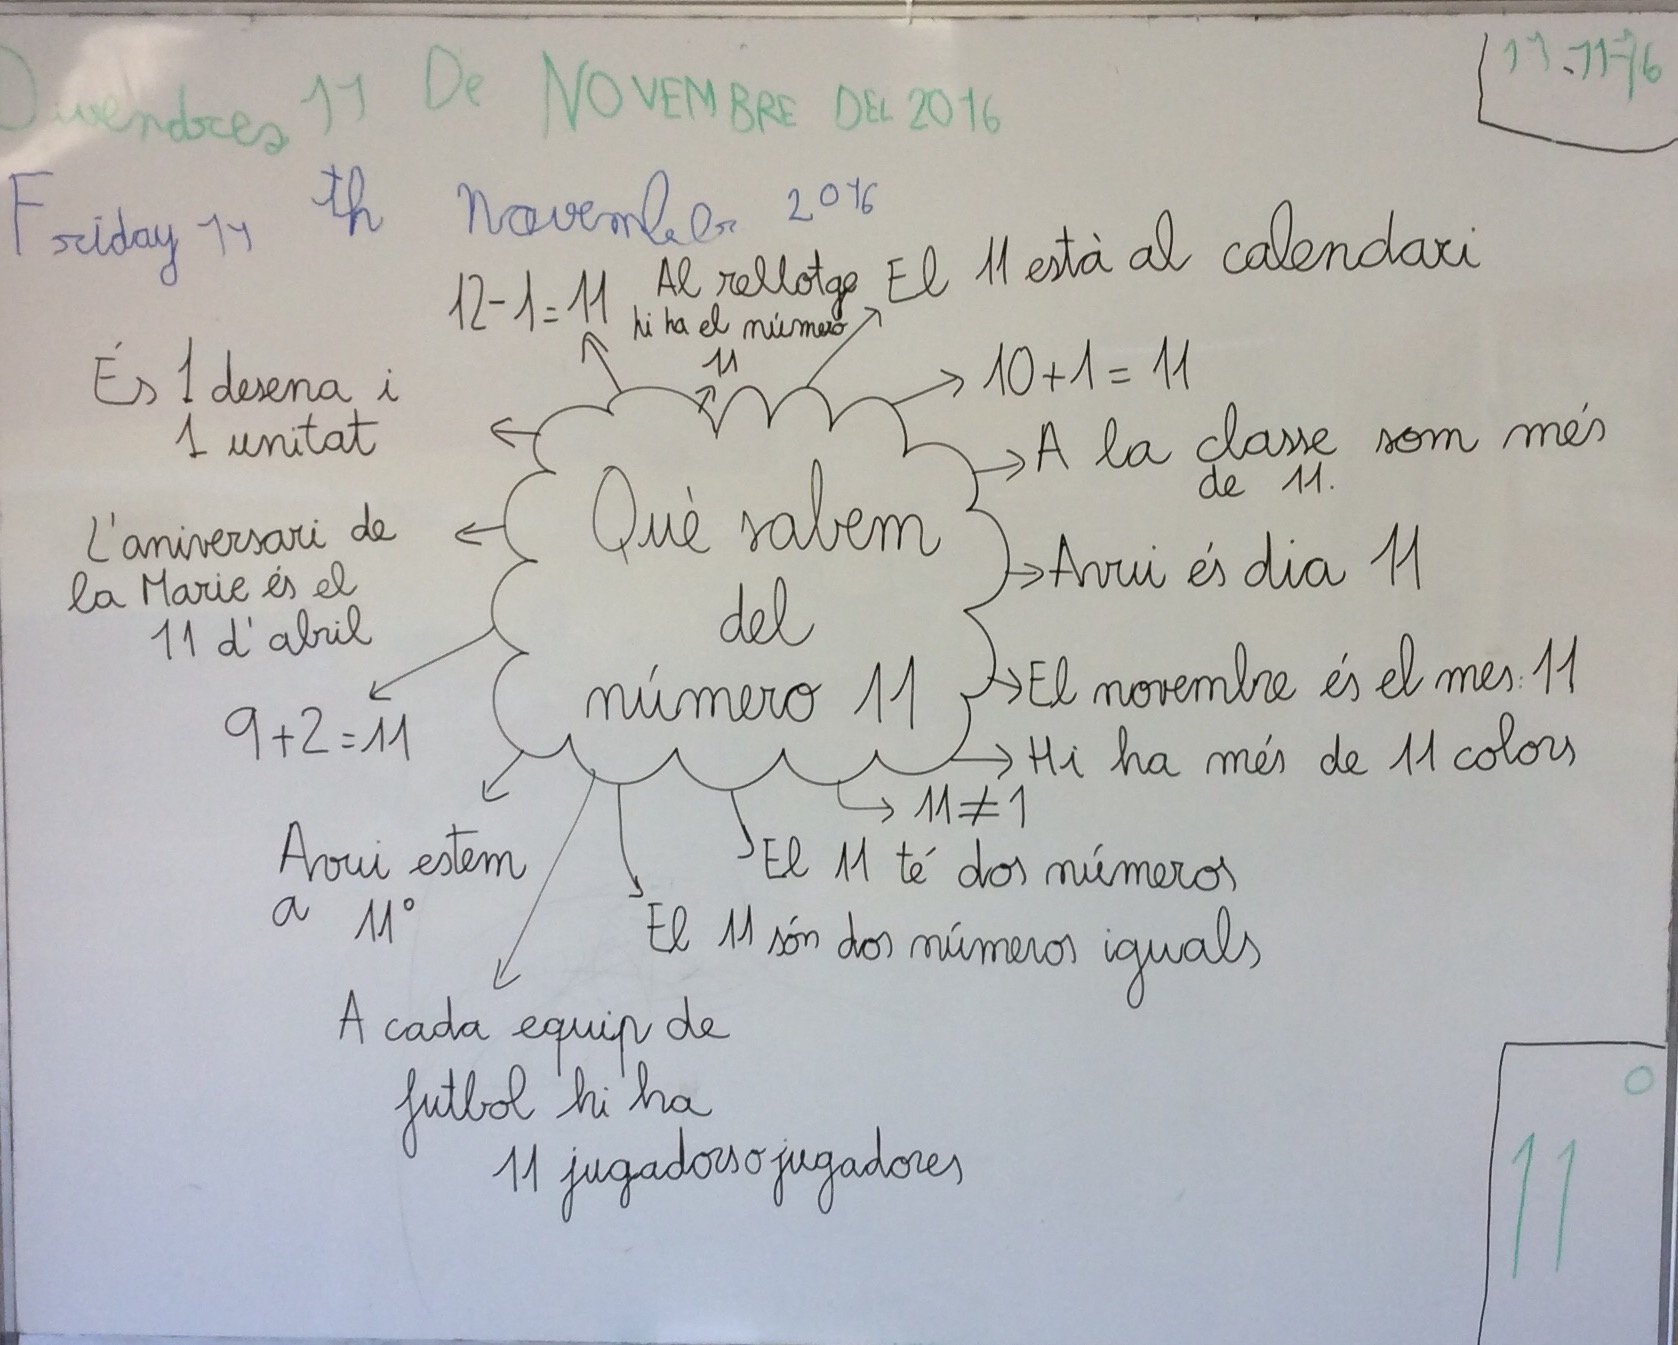 Divendres 11 De NOVEMBRE DEL 2016
11-11-16
Friday 11th November 2016
12-1=11
Al rellotge
hi ha el número
11
El 11 està al calendari
10+1=11
És 1 desena i
1 unitat
A la classe som més
de 11.
Què sabem
del
número 11
L'aniversari de
la Marie és el
11 d'abril
Avui és dia 11
El novembre és el mes 11
9+2=11
Hi ha més de 11 colors
11≠1
Avui estem
a 11°
El 11 té dos números
El 11 són dos números iguals
A cada equip de
futbol hi ha
11 jugadors o jugadores
11°